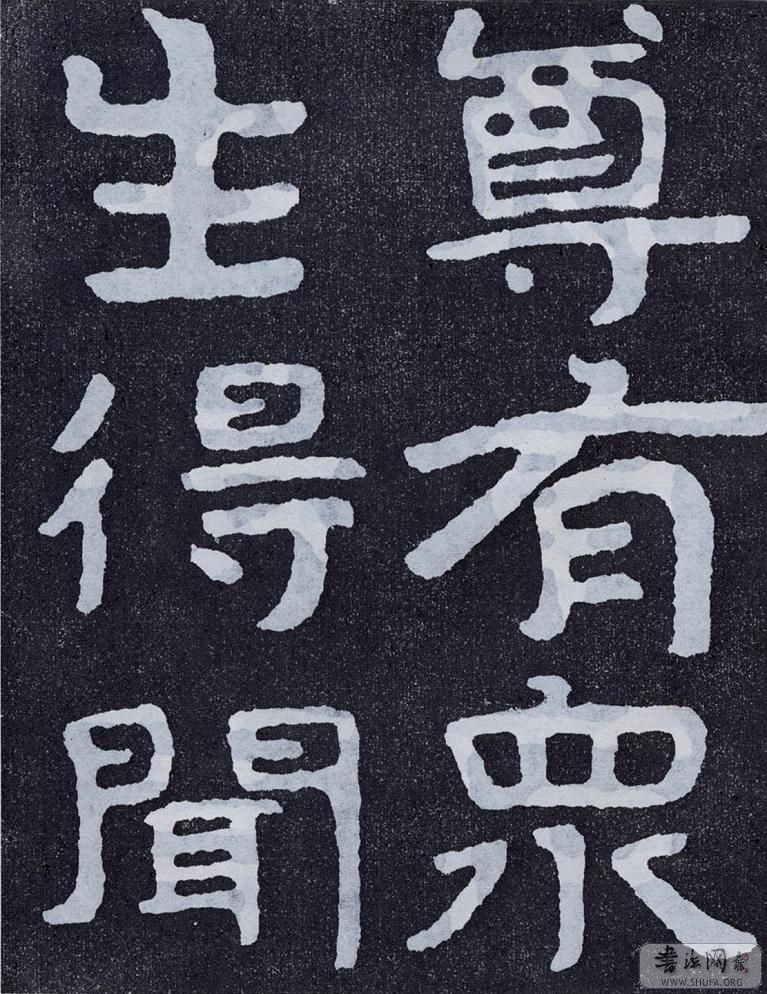 尊有眾
生得聞
書法网
WWW.SHUFA.ORG